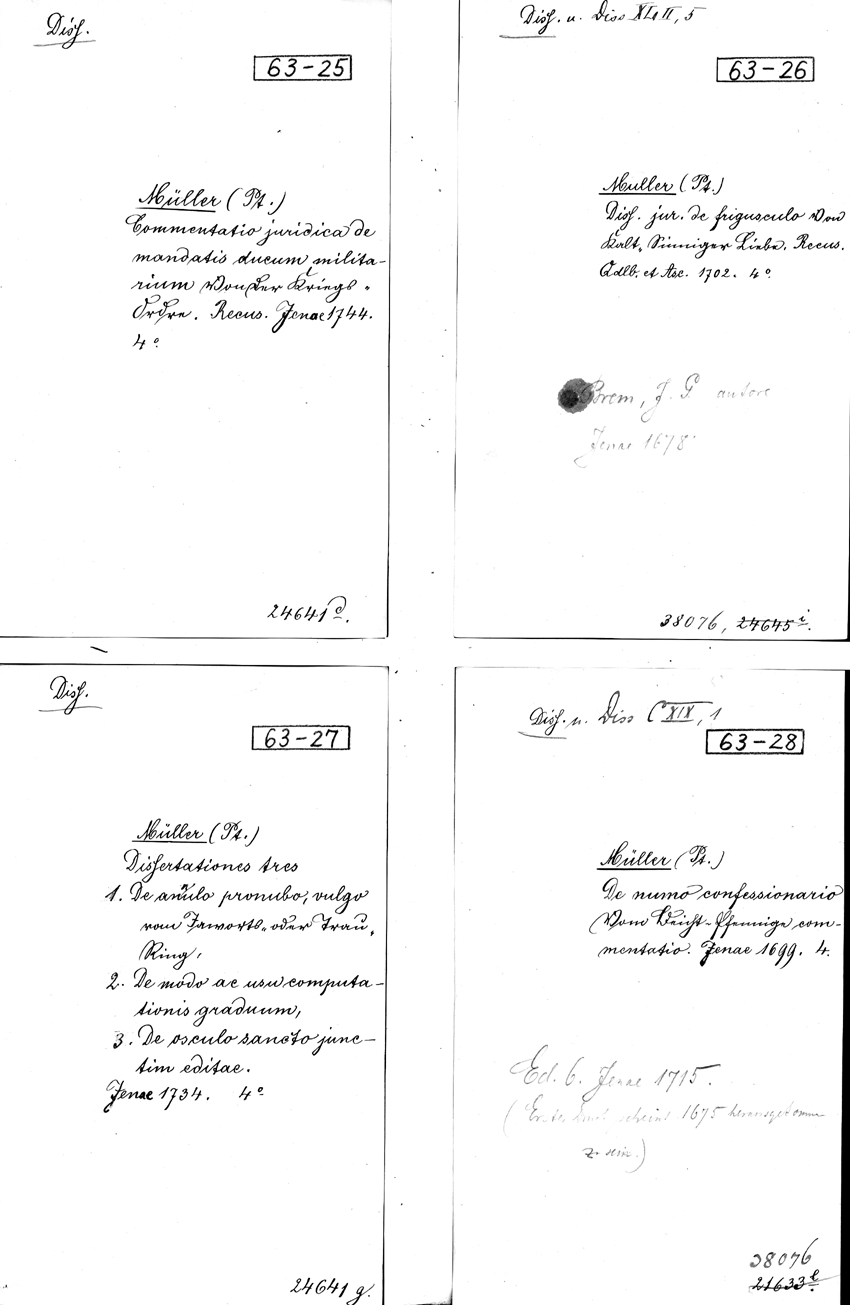 Diss.
63-25
Müller (Pt.)
Commentatio juridica de
mandatis ducum milita-
rium Von der Kriegs-
Ordre. Recus. Jenae 1744.
4°
24641 d.
Diss. u. Diss XLII, 5
63-26
Müller (Pt.)
Diss. jur. de frigusculo Von
Kalt-Sinniger Liebe. Recus.
Qdlb. et Asc. 1702. 4°
Brem, J. G. autore
Jenae 1678
38076, 24645 i.
Diss.
63-27
Müller (Pt.)
Dissertationes tres
1. De anulo pronubo, vulgo
vom Jaworts- oder Trau-
Ring,
2. De modo ac usu computa-
tionis graduum,
3. De osculo sancto junc-
tim editae.
Jenae 1734. 4°
24641 g.
Diss. u. Diss CXIX, 1
63-28
Müller (Pt.)
De numo confessionario
Vom Beicht-Pfennige com-
mentatio. Jenae 1699. 4.
Ed. 6. Jenae 1715.
(Erster Druck scheint 1675 herausgekommen
zu sein.)
38076
21633 l.